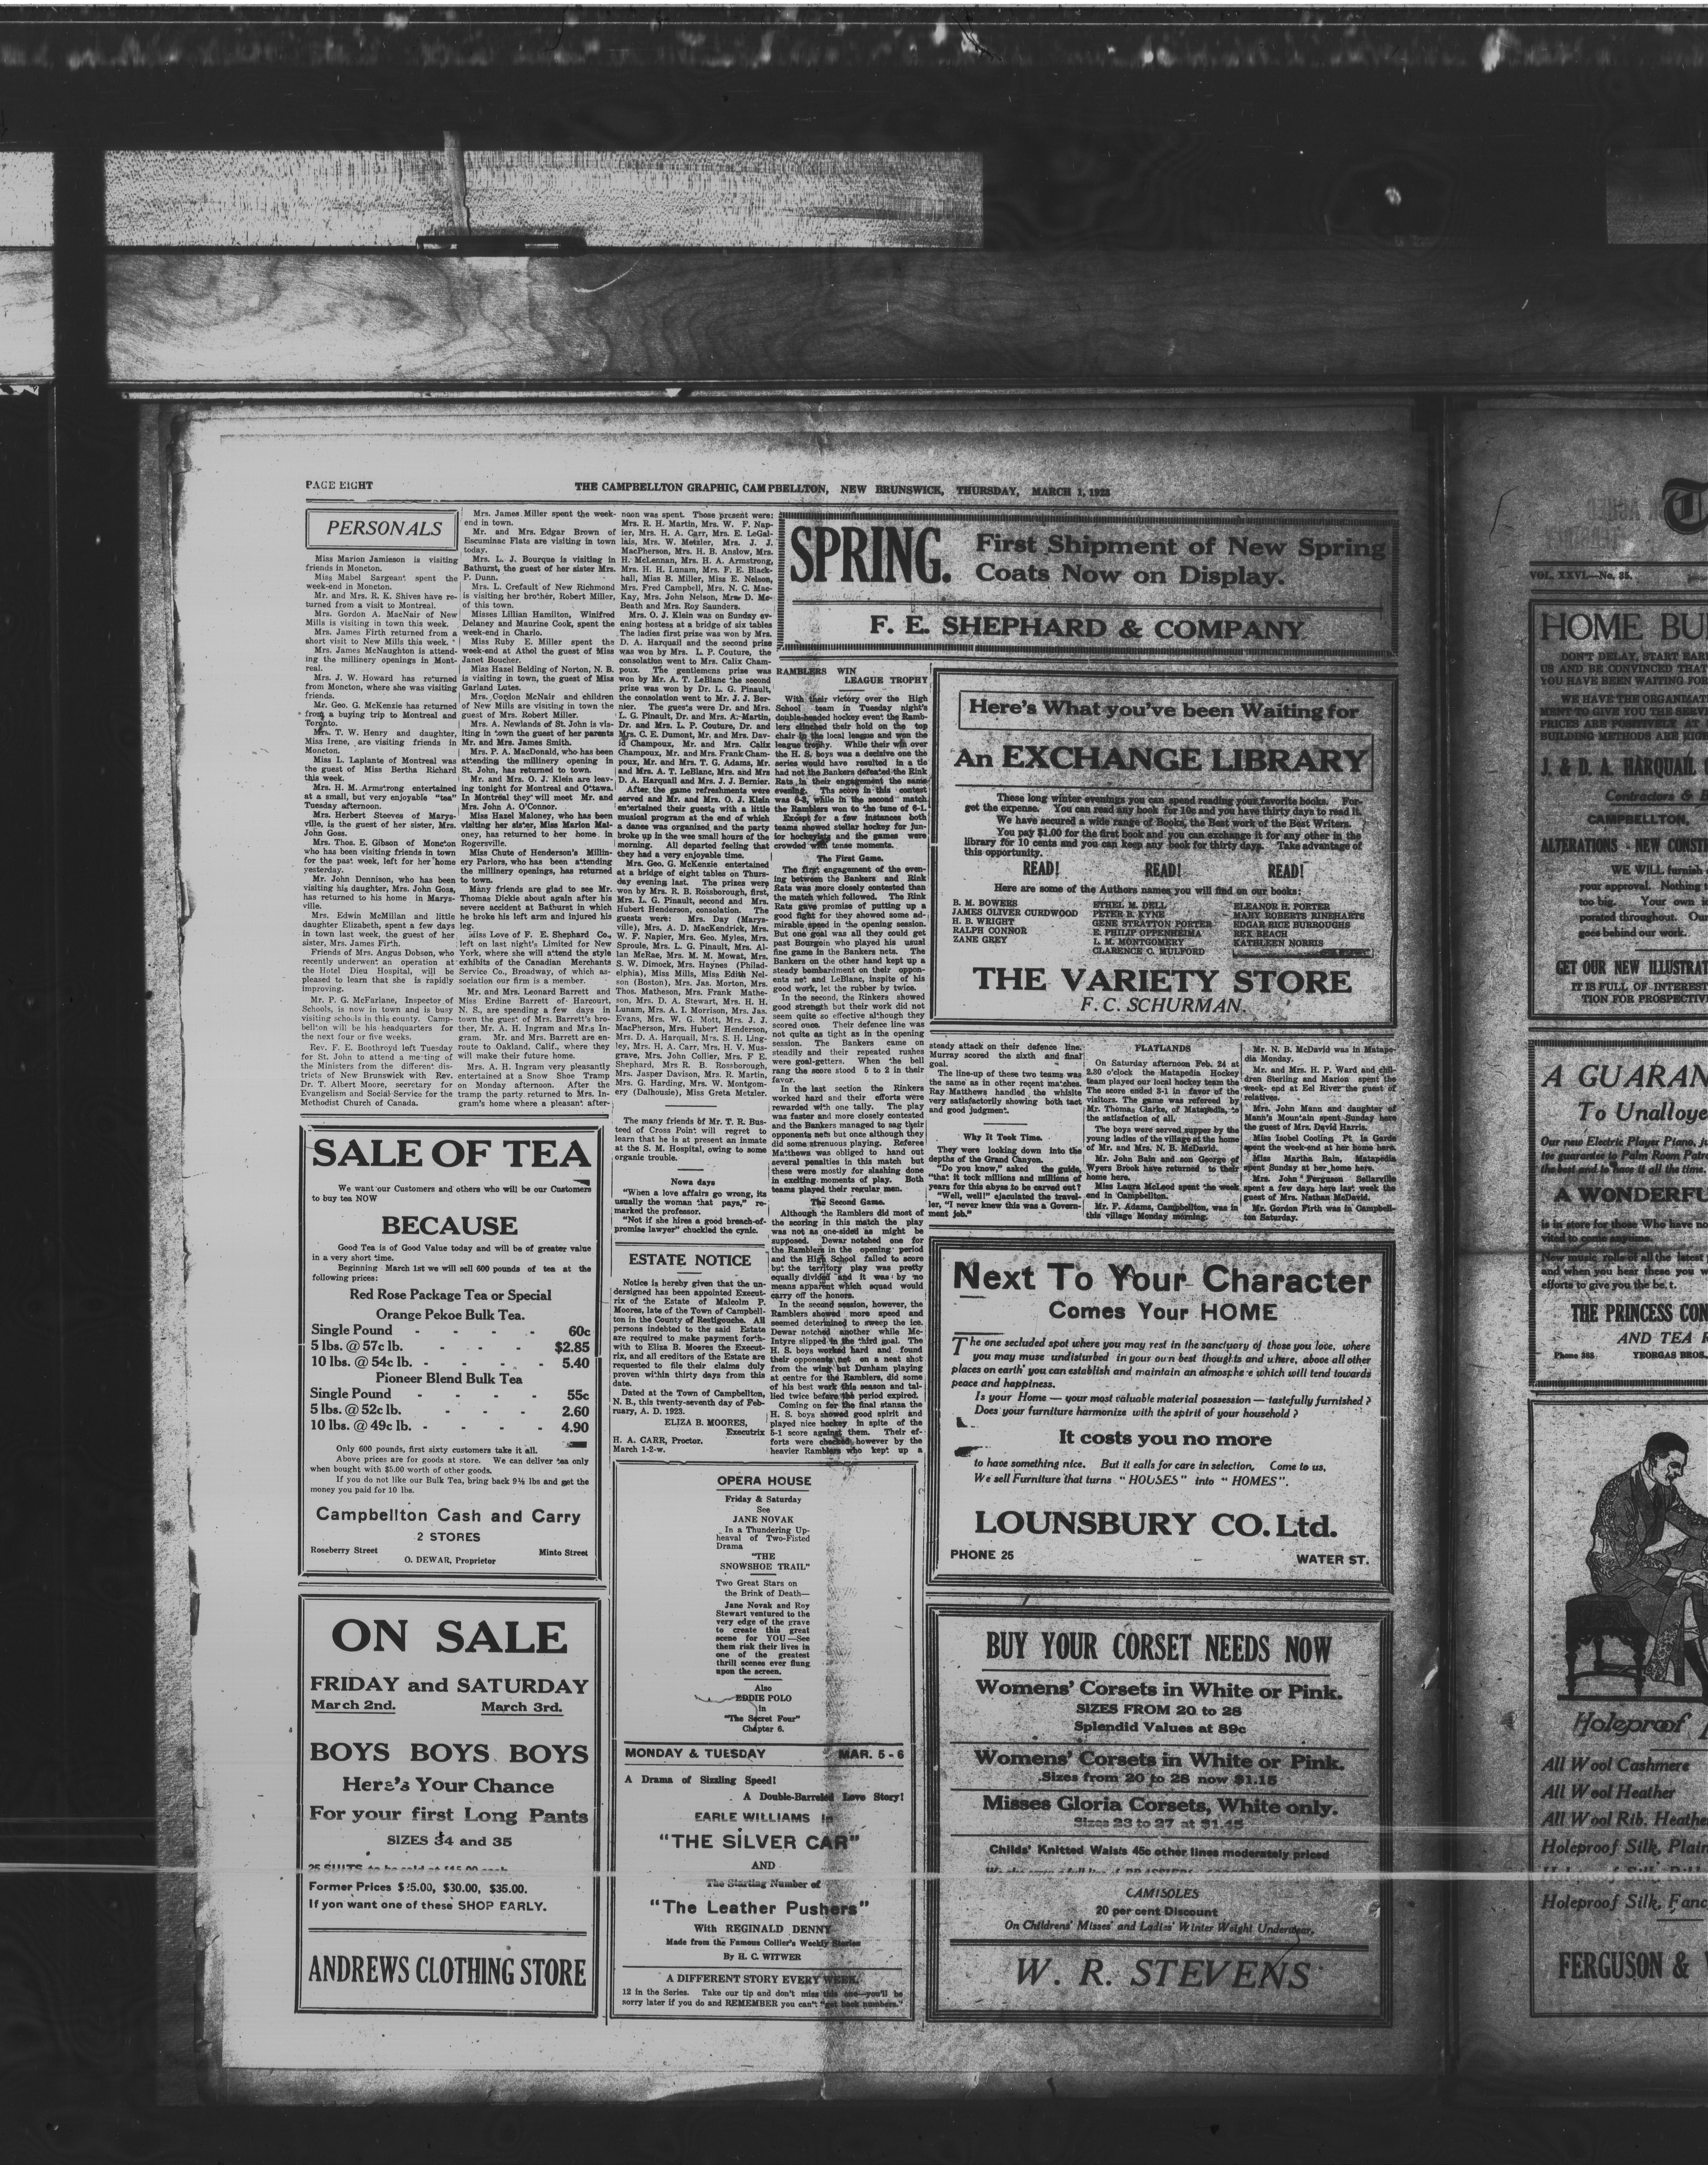 PAGE EIGHT
THE CAMPBELLTON GRAPHIC, CAMPBELLTON, NEW BRUNSWICK, THURSDAY, MARCH 1, 1923
PERSONALS
Miss Marion Jamieson is visiting
friends in Moncton.
Miss Mabel Sargeant spent the
week-end in Moncton.
Mr. and Mrs. R. K. Shives have re-
turned from a visit to Montreal.
Mrs. Gordon A. MacNair of New
Mills is visiting in town this week.
Mrs. James Firth returned from a
short visit to New Mills this week.
Mrs. James McNaughton is attend-
ing the millinery openings in Mont-
real.
Mrs. J. W. Howard has returned
from Moncton, where she was visiting
friends.
Mr. Geo. G. McKenzie has returned
from a buying trip to Montreal and
Toronto.
Mrs. T. W. Henry and daughter,
Miss Irene, are visiting friends in
Moncton.
Miss L. Laplante of Montreal was
the guest of Miss Bertha Richard
this week.
Mrs. H. M. Armstrong entertained
at a small, but very enjoyable "tea"
Tuesday afternoon.
Mrs. Herbert Steeves of Marys-
ville, is the guest of her sister, Mrs.
John Goss.
Mrs. Thos. E. Gibson of Moncton
who has been visiting friends in town
for the past week, left for her home
yesterday.
Mr. John Dennison, who has been
visiting his daughter, Mrs. John Goss,
has returned to his home in Marys-
ville.
Mrs. Edwin McMillan and little
daughter Elizabeth, spent a few days
in town last week, the guest of her
sister, Mrs. James Firth.
Friends of Mrs. Angus Dobson, who
recently underwent an operation at
the Hotel Dieu Hospital, will be
pleased to learn that she is rapidly
improving.
Mr. P. G. McFarlane, Inspector of
Schools, is now in town and is busy
visiting schools in this county. Camp-
bellton will be his headquarters for
the next four or five weeks.
Rev. F. E. Boothroyd left Tuesday
for St. John to attend a meeting of
the Ministers from the different dis-
tricts of New Brunswick with Rev.
Dr. T. Albert Moore, secretary for
Evangelism and Social Service for the
Methodist Church of Canada.
Mrs. James Miller spent the week-
end in town.
Mr. and Mrs. Edgar Brown of
Escuminac Flats are visiting in town
today.
Mrs. L. J. Bourque is visiting in
Bathurst, the guest of her sister Mrs.
P. Dunn.
Mrs. L. Crefault of New Richmond
is visiting her brother, Robert Miller,
of this town.
Misses Lillian Hamilton, Winifred
Delaney and Maurine Cook, spent the
week-end in Charlo.
Miss Ruby E. Miller spent the
week-end at Athol the guest of Miss
Janet Boucher.
Miss Hazel Belding of Norton, N. B.
is visiting in town, the guest of Miss
Garland Lutes.
Mrs. Cordon McNair and children
of New Mills are visiting in town the
guest of Mrs. Robert Miller.
Mrs. A. Newlands of St. John is vis-
iting in town the guest of her parents
Mr. and Mrs. James Smith.
Mrs. P. A. MacDonald, who has been
attending the millinery opening in
St. John, has returned to town.
Mr. and Mrs. O. J. Klein are leav-
ing tonight for Montreal and Ottawa.
In Montreal they will meet Mr. and
Mrs. John A. O'Connor.
Miss Hazel Maloney, who has been
visiting her sister, Miss Marion Mal-
oney, has returned to her home in
Rogersville.
Miss Chute of Henderson's Millin-
ery Parlors, who has been attending
the millinery openings, has returned
to town.
Many friends are glad to see Mr.
Thomas Dickie about again after his
severe accident at Bathurst in which
he broke his left arm and injured his
leg.
Miss Love of F. E. Shephard Co.,
left on last night's Limited for New
York, where she will attend the style
exhibits of the Canadian Merchants
Service Co., Broadway, of which as-
sociation our firm is a member.
Mr. and Mrs. Leonard Barrett and
Miss Erdine Barrett of Harcourt,
N. S., are spending a few days in
town the guest of Mrs. Barrett's bro-
ther, Mr. A. H. Ingram and Mrs. In-
gram. Mr. and Mrs. Barrett are en-
route to Oakland, Calif., where they
will make their future home.
Mrs. A. H. Ingram very pleasantly
entertained at a Snow Shoe Tramp
on Monday afternoon. After the
tramp the party returned to Mrs. In-
gram's home where a pleasant after-
noon was spent. Those present were:
Mrs. R. H. Martin, Mrs. W. F. Nap-
ier, Mrs. H. A. Carr, Mrs. E. LeGal-
lais, Mrs. W. Metzler, Mrs. J. J.
MacPherson, Mrs. H. B. Anslow, Mrs.
H. McLennan, Mrs. H. A. Armstrong,
Mrs. H. H. Lunam, Mrs. F. E. Black-
hall, Miss B. Miller, Miss E. Nelson,
Mrs. Fred Campbell, Mrs. N. C. Mac-
Kay, Mrs. John Nelson, Mrs. D. Mc-
Beath and Mrs. Roy Saunders.
Mrs. O. J. Klein was on Sunday ev-
ening hostess at a bridge of six tables
The ladies first prize was won by Mrs.
D. A. Harquail and the second prize
was won by Mrs. L. P. Couture, the
consolation went to Mrs. Calix Cham-
poux. The gentlemens prize was
won by Mr. A. T. LeBlanc the second
prize was won by Dr. L. G. Pinault,
the consolation went to Mr. J. J. Ber-
nier. The guests were Dr. and Mrs.
L. G. Pinault, Dr. and Mrs. A. Martin,
Dr. and Mrs. L. P. Couture, Dr. and
Mrs. C. E. Dumont, Mr. and Mrs. Dav-
id Champoux, Mr. and Mrs. Calix
Champoux, Mr. and Mrs. Frank Cham-
poux, Mr. and Mrs. T. G. Adams, Mr.
and Mrs. A. T. LeBlanc, Mrs. and Mrs
D. A. Harquail and Mrs. J. J. Bernier.
After the game refreshments were
served and Mr. and Mrs. O. J. Klein
entertained their guests with a little
musical program at the end of which
a danse was organized and the party
broke up in the wee small hours of the
morning. All departed feeling that
they had a very enjoyable time.
Mrs. Geo. G. McKenzie entertained
at a bridge of eight tables on Thurs-
day evening last. The prizes were
won by Mrs. R. B. Rossborough, first,
Mrs. L. G. Pinault, second and Mrs.
Hubert Henderson, consolation. The
guests were: Mrs. Day (Marys-
ville), Mrs. A. D. MacKendrick, Mrs.
W. F. Napier, Mrs. Geo. Myles, Mrs.
Sproule, Mrs. L. G. Pinault, Mrs. Al-
lan McRae, Mrs. M. M. Mowat, Mrs.
S. W. Dimock, Mrs. Haynes (Philad-
elphia), Miss Mills, Miss Edith Nel-
son (Boston), Mrs. Jas. Morton, Mrs.
Thos. Matheson, Mrs. Frank Mathe-
son, Mrs. D. A. Stewart, Mrs. H. H.
Lunam, Mrs. A. I. Morrison, Mrs. Jas.
Evans, Mrs. W. G. Mott, Mrs. J. J.
MacPherson, Mrs. Hubert Henderson,
Mrs. D. A. Harquail, Mrs. S. H. Ling-
ley, Mrs. H. A. Carr, Mrs. H. V. Mus-
grave, Mrs. John Collier, Mrs. F E.
Shephard, Mrs R. B. Rossborough,
Mrs. Jasper Davison, Mrs. R. Martin,
Mrs. G. Harding, Mrs. W. Montgom-
ery (Dalhousie), Miss Greta Metzler.
The many friends bf Mr. T. R. Bus-
teed of Cross Point will regret to
learn that he is at present an inmate
at the S. M. Hospital, owing to some
organic trouble.
Nows days
"When a love affairs go wrong, its
usually the woman that pays," re-
marked the professor.
"Not if she hires a good breach-of-
promise lawyer" chuckled the cynic.
ESTATE NOTICE
Notice is hereby given that the un-
dersigned has been appointed Execut-
rix of the Estate of Malcolm P.
Moores, late of the Town of Campbell-
ton in the County of Restigouche. All
persons indebted to the said Estate
are required to make payment forth-
with to Eliza B. Moores the Execut-
rix, and all creditors of the Estate are
requested to file their claims duly
proven within thirty days from this
date.
Dated at the Town of Campbellton,
N. B., this twenty-seventh day of Feb-
ruary, A. D. 1923.
ELIZA B. MOORES,
Executrix
H. A. CARR, Proctor.
March 1-2-w.
SPRING.
First Shipment of New Spring
Coats Now on Display.
F. E. SHEPHARD & COMPANY
RAMBLERS WIN
LEAGUE TROPHY
With their victory over the High
School team in Tuesday night's
double-headed hockey event the Ramb-
lers clinched their hold on the top
chair in the local league and won the
league trophy. While their win over
the H. S. boys was a decisive one the
series would have resulted in a tie
had not the Bankers defeated the Rink
Rats in their engagement the same
evening. The score in this contest
was 6-3, while in the second match
the Ramblers won to the tune of 6-1.
Except for a few instances both
teams showed stellar hockey for jun-
ior hockeyists and the games were
crowded with tense moments.
The First Game.
The first engagement of the even-
ing between the Bankers and Rink
Rats was more closely contested than
the match which followed. The Rink
Rats gave promise of putting up a
good fight for they showed some ad-
mirable speed in the opening session.
But one goal was all they could get
past Bourgoin who played his usual
fine game in the Bankers nets. The
Bankers on the other hand kept up a
steady bombardment on their oppon-
ents net and LeBlanc, inspite of his
good work, let the rubber by twice.
In the second, the Rinkers showed
good strength but their work did not
seem quite so effective although they
scored once. Their defence line was
not quite as tight as in the opening
session. The Bankers came on
steadily and their repeated rushes
were goal-getters. When the bell
rang the score stood 5 to 2 in their
favor.
In the last section the Rinkers
worked hard and their efforts were
rewarded with one tally. The play
was faster and more closely contested
and the Bankers managed to sag their
opponents nets but once although they
did some strenuous playing. Referee
Matthews was obliged to hand out
several penalties in this match but
these were mostly for slashing done
in exciting moments of play. Both
teams played their regular men.
The Second Game.
Although the Ramblers did most of
the scoring in this match the play
was not as one-sided as might be
supposed. Dewar notched one for
the Ramblers in the opening period
and the High School failed to score
but the territory play was pretty
equally divided and it was by no
means apparent which squad would
carry off the honors.
In the second session, however, the
Ramblers showed more speed and
seemed determined to sweep the ice.
Dewar notched another while Mc-
Intyre slipped in the third goal. The
H. S. boys worked hard and found
their opponents net on a neat shot
from the wing but Dunham playing
at centre for the Ramblers, did some
of his best work this season and tal-
lied twice before the period expired.
Coming on for the final stanza the
H. S. boys showed good spirit and
played nice hockey in spite of the
5-1 score against them. Their ef-
forts were checked however by the
heavier Ramblers who kept up a
steady attack on their defence line.
Murray scored the sixth and final
goal.
The line-up of these two teams was
the same as in other recent matches.
Ray Matthews handled the whistle
very satisfactorily showing both tact
and good judgment.
Why It Took Time.
They were looking down into the
depths of the Grand Canyon.
"Do you know," asked the guide,
"that it took millions and millions of
years for this abyss to be carved out?
"Well, well!" ejaculated the travel-
ler, "I never knew this was a Govern-
ment job."
FLATLANDS
On Saturday afternoon Feb. 24 at
2.30 o'clock the Matapedia Hockey
team played our local hockey team the
The score ended 3-1 in favor of the
visitors. The game was refereed by
Mr. Thomas Clarke, of Matapedia, to
the satisfaction of all.
The boys were served supper by the
young ladies of the village at the home
of Mr. and Mrs. N. B. McDavid.
Mr. John Bain and son George of
Wyers Brook have returned to their
home here.
Miss Laura McLeod spent the week
end in Campbellton.
Mr. F. Adams, Campbellton, was in
this village Monday morning.
Mr. N. B. McDavid was in Matape-
dia Monday.
Mr. and Mrs. H. P. Ward and chil-
dren Sterling and Marion spent the
week- end at Eel River the guest of
relatives.
Mrs. John Mann and daughter of
Mann's Mountain spent Sunday here
the guest of Mrs. David Harris.
Miss Isobel Cooling Pt. la Garde
spent the week-end at her home here.
Miss Martha Bain, Matapedia
spent Sunday at her home here.
Mrs. John Ferguson Sellarville
spent a few days here last week the
guest of Mrs. Nathan McDavid.
Mr. Gordon Firth was in Campbell-
ton Saturday.
Here's What you've been Waiting for
An EXCHANGE LIBRARY
These long winter evenings you can spend reading your favorite books. For-
get the expense. You can read any book for 10c and you have thirty days to read it.
We have secured a wide range of Books, the Best work of the Best Writers.
You pay $1.00 for the first book and you can exchange it for any other in the
library for 10 cents and you can keep any book for thirty days. Take advantage of
this opportunity.
READ! READ! READ!
Here are some of the Authors names you will find on our books:
B. M. BOWERS
JAMES OLIVER CURDWOOD
H. B. WRIGHT
RALPH CONNOR
ZANE GREY
ETHEL M. DELL
PETER B. KYNE
GENE STRATTON PORTER
E. PHILIP OPPENHEIMA
L. M. MONTGOMERY
CLARENCE C. MULFORD
ELEANOR H. PORTER
MARY ROBERTS RINEHARTS
EDGAR RICE BURROUGHS
REX BEACH
KATHLEEN NORRIS
THE VARIETY STORE
F. C. SCHURMAN.
SALE OF TEA
We want our Customers and others who will be our Customers
to buy tea NOW
BECAUSE
Good Tea is of Good Value today and will be of greater value
in a very short time.
Beginning March 1st we will sell 600 pounds of tea at the
following prices:
Red Rose Package Tea or Special
Orange Pekoe Bulk Tea.
Single Pound - - - - 60c
5 lbs. @ 57c lb. - - - - $2.85
10 lbs. @ 54c lb. - - - - 5.40
Pioneer Blend Bulk Tea
Single Pound - - - - 55c
5 lbs. @ 52c lb. - - - - 2.60
10 lbs. @ 49c lb. - - - - 4.90
Only 600 pounds, first sixty customers take it all.
Above prices are for goods at store. We can deliver tea only
when bought with $5.00 worth of other goods.
If you do not like our Bulk Tea, bring back 9½ lbs and get the
money you paid for 10 lbs.
Campbellton Cash and Carry
2 STORES
Roseberry Street Minto Street
O. DEWAR, Proprietor
ON SALE
FRIDAY and SATURDAY
March 2nd. March 3rd.
BOYS BOYS BOYS
Here's Your Chance
For your first Long Pants
SIZES 34 and 35
25 SUITS to be sold at $15.00 each
Former Prices $25.00, $30.00, $35.00.
If yon want one of these SHOP EARLY.
ANDREWS CLOTHING STORE
OPERA HOUSE
Friday & Saturday
See
JANE NOVAK
In a Thundering Up-
heaval of Two-Fisted
Drama
"THE
SNOWSHOE TRAIL"
Two Great Stars on
the Brink of Death—
Jane Novak and Roy
Stewart ventured to the
very edge of the grave
to create this great
scene for YOU—See
them risk their lives in
one of the greatest
thrill scenes ever flung
upon the screen.
Also
EDDIE POLO
in
"The Secret Four"
Chapter 6.
MONDAY & TUESDAY MAR. 5 - 6
A Drama of Sizzling Speed!
A Double-Barreled Love Story!
EARLE WILLIAMS In
"THE SILVER CAR"
AND
The Starting Number of
"The Leather Pushers"
With REGINALD DENNY
Made from the Famous Collier's Weekly Stories
By H. C. WITWER
A DIFFERENT STORY EVERY WEEK.
12 in the Series. Take our tip and don't miss this one—you'll be
sorry later if you do and REMEMBER you can't "get back numbers."
Next To Your Character
Comes Your HOME
The one secluded spot where you may rest in the sanctuary of those you love, where
you may muse undisturbed in your own best thoughts and where, above all other
places on earth you can establish and maintain an atmosphere which will tend towards
peace and happiness.
Is your Home — your most valuable material possession — tastefully furnished?
Does your furniture harmonize with the spirit of your household?
It costs you no more
to have something nice. But it calls for care in selection, Come to us,
We sell Furniture that turns "HOUSES" into "HOMES".
LOUNSBURY CO. Ltd.
PHONE 25 WATER ST.
BUY YOUR CORSET NEEDS NOW
Womens' Corsets in White or Pink.
SIZES FROM 20 to 28
Splendid Values at 89c
Womens' Corsets in White or Pink.
Sizes from 20 to 28 now $1.15
Misses Gloria Corsets, White only.
Sizes 23 to 27 at $1.45
Childs' Knitted Waists 45c other lines moderately priced
CAMISOLES
20 per cent Discount
On Childrens' Misses' and Ladies' Winter Weight Underwear.
W. R. STEVENS
VOL. XXVI.—No. 35.
HOME BU
DON'T DELAY, START EAR
US AND BE CONVINCED THAT
YOU HAVE BEEN WAITING FOR
WE HAVE THE ORGANIZAT
MENT TO GIVE YOU THE SERVI
PRICES ARE POSITIVELY AT
BUILDING METHODS ARE RIGH
J. & D. A. HARQUAIL
Contractors & B
CAMPBELLTON,
ALTERATIONS - NEW CONST
WE WILL furnish
your approval. Nothing
too big. Your own i
porated throughout. Ou
goes behind our work.
GET OUR NEW ILLUSTRAT
IT IS FULL OF INTEREST
TION FOR PROSPECTIV
A GUARAN
To Unalloye
Our new Electric Player Piano, ju
too guarantee to Palm Room Patro
the best and to have it all the time
A WONDERFU
is in store for those Who have no
vited to come anytime.
New music rolls of all the latest
and when you hear these you w
efforts to give you the be t.
THE PRINCESS CON
AND TEA R
Phone 388 YEORGAS BROS.
Holeproof
All Wool Cashmere
All Wool Heather
All Wool Rib, Heathe
Holeproof Silk, Plain
Holeproof Silk, Fanc
FERGUSON &